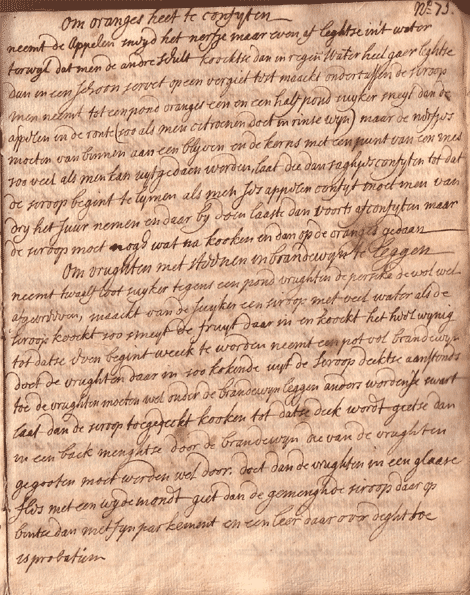 No 75.
Om oranges heet te confyten
neemt de appelen snyd het nerfje maer even af leghtse in't water
terwyl dat men de andre schilt koocktse dan in regen water heel gaer leghtse
dan in een schoon servet op een vergiet tot maackt ondertussen de seroop
men neemt tot een pond oranges een en een half pond suyker sneyt dan de
appelen in de ronte (soo als men citroenen doet in rinse wyn) maar de
moeten van binnen aan een blyven en de kerns met een punt van een mes
soo veel als men kan uyt gedaen worden, laat die dan saghjes confyten tot dat
de seroop begint te lymen als men appelen confyt moet men van
dry het suur nemen en daar by doen laatse dan voorts afconfyten maar
de seroop moet nogh wat na kooken en dan op de oranges gedaan
Om vrughten met steenen in brandewyn te leggen
neemt twaelf loot suyker tegens een pond vrughten de persike de wol wel
afgewreven, maackt van de suyker een seroop met veel water als de
seroop koockt soo smeyt de fruyt daar in en koockt het heel wynig
tot datse even begint weeck te worden neemt een pot vol brandewyn
doet de vrughten daar in soo kokende uyt de seroop decktse aanstonds
toe de vrughten moeten wel onder de brandewyn leggen anders worden se swart
laat dan de seroop toegedeckt kooken tot datse dick wordt gietse dan
in een back menghtse door de brandewyn die van de vrughten
gegooten moet worden wel door. doet dan de vrughten in een glaase
fles met een wyde mondt giet dan de gemenghde seroop daar op
bintse dan met fyn parkement en een leer daar over dight toe
is probatum